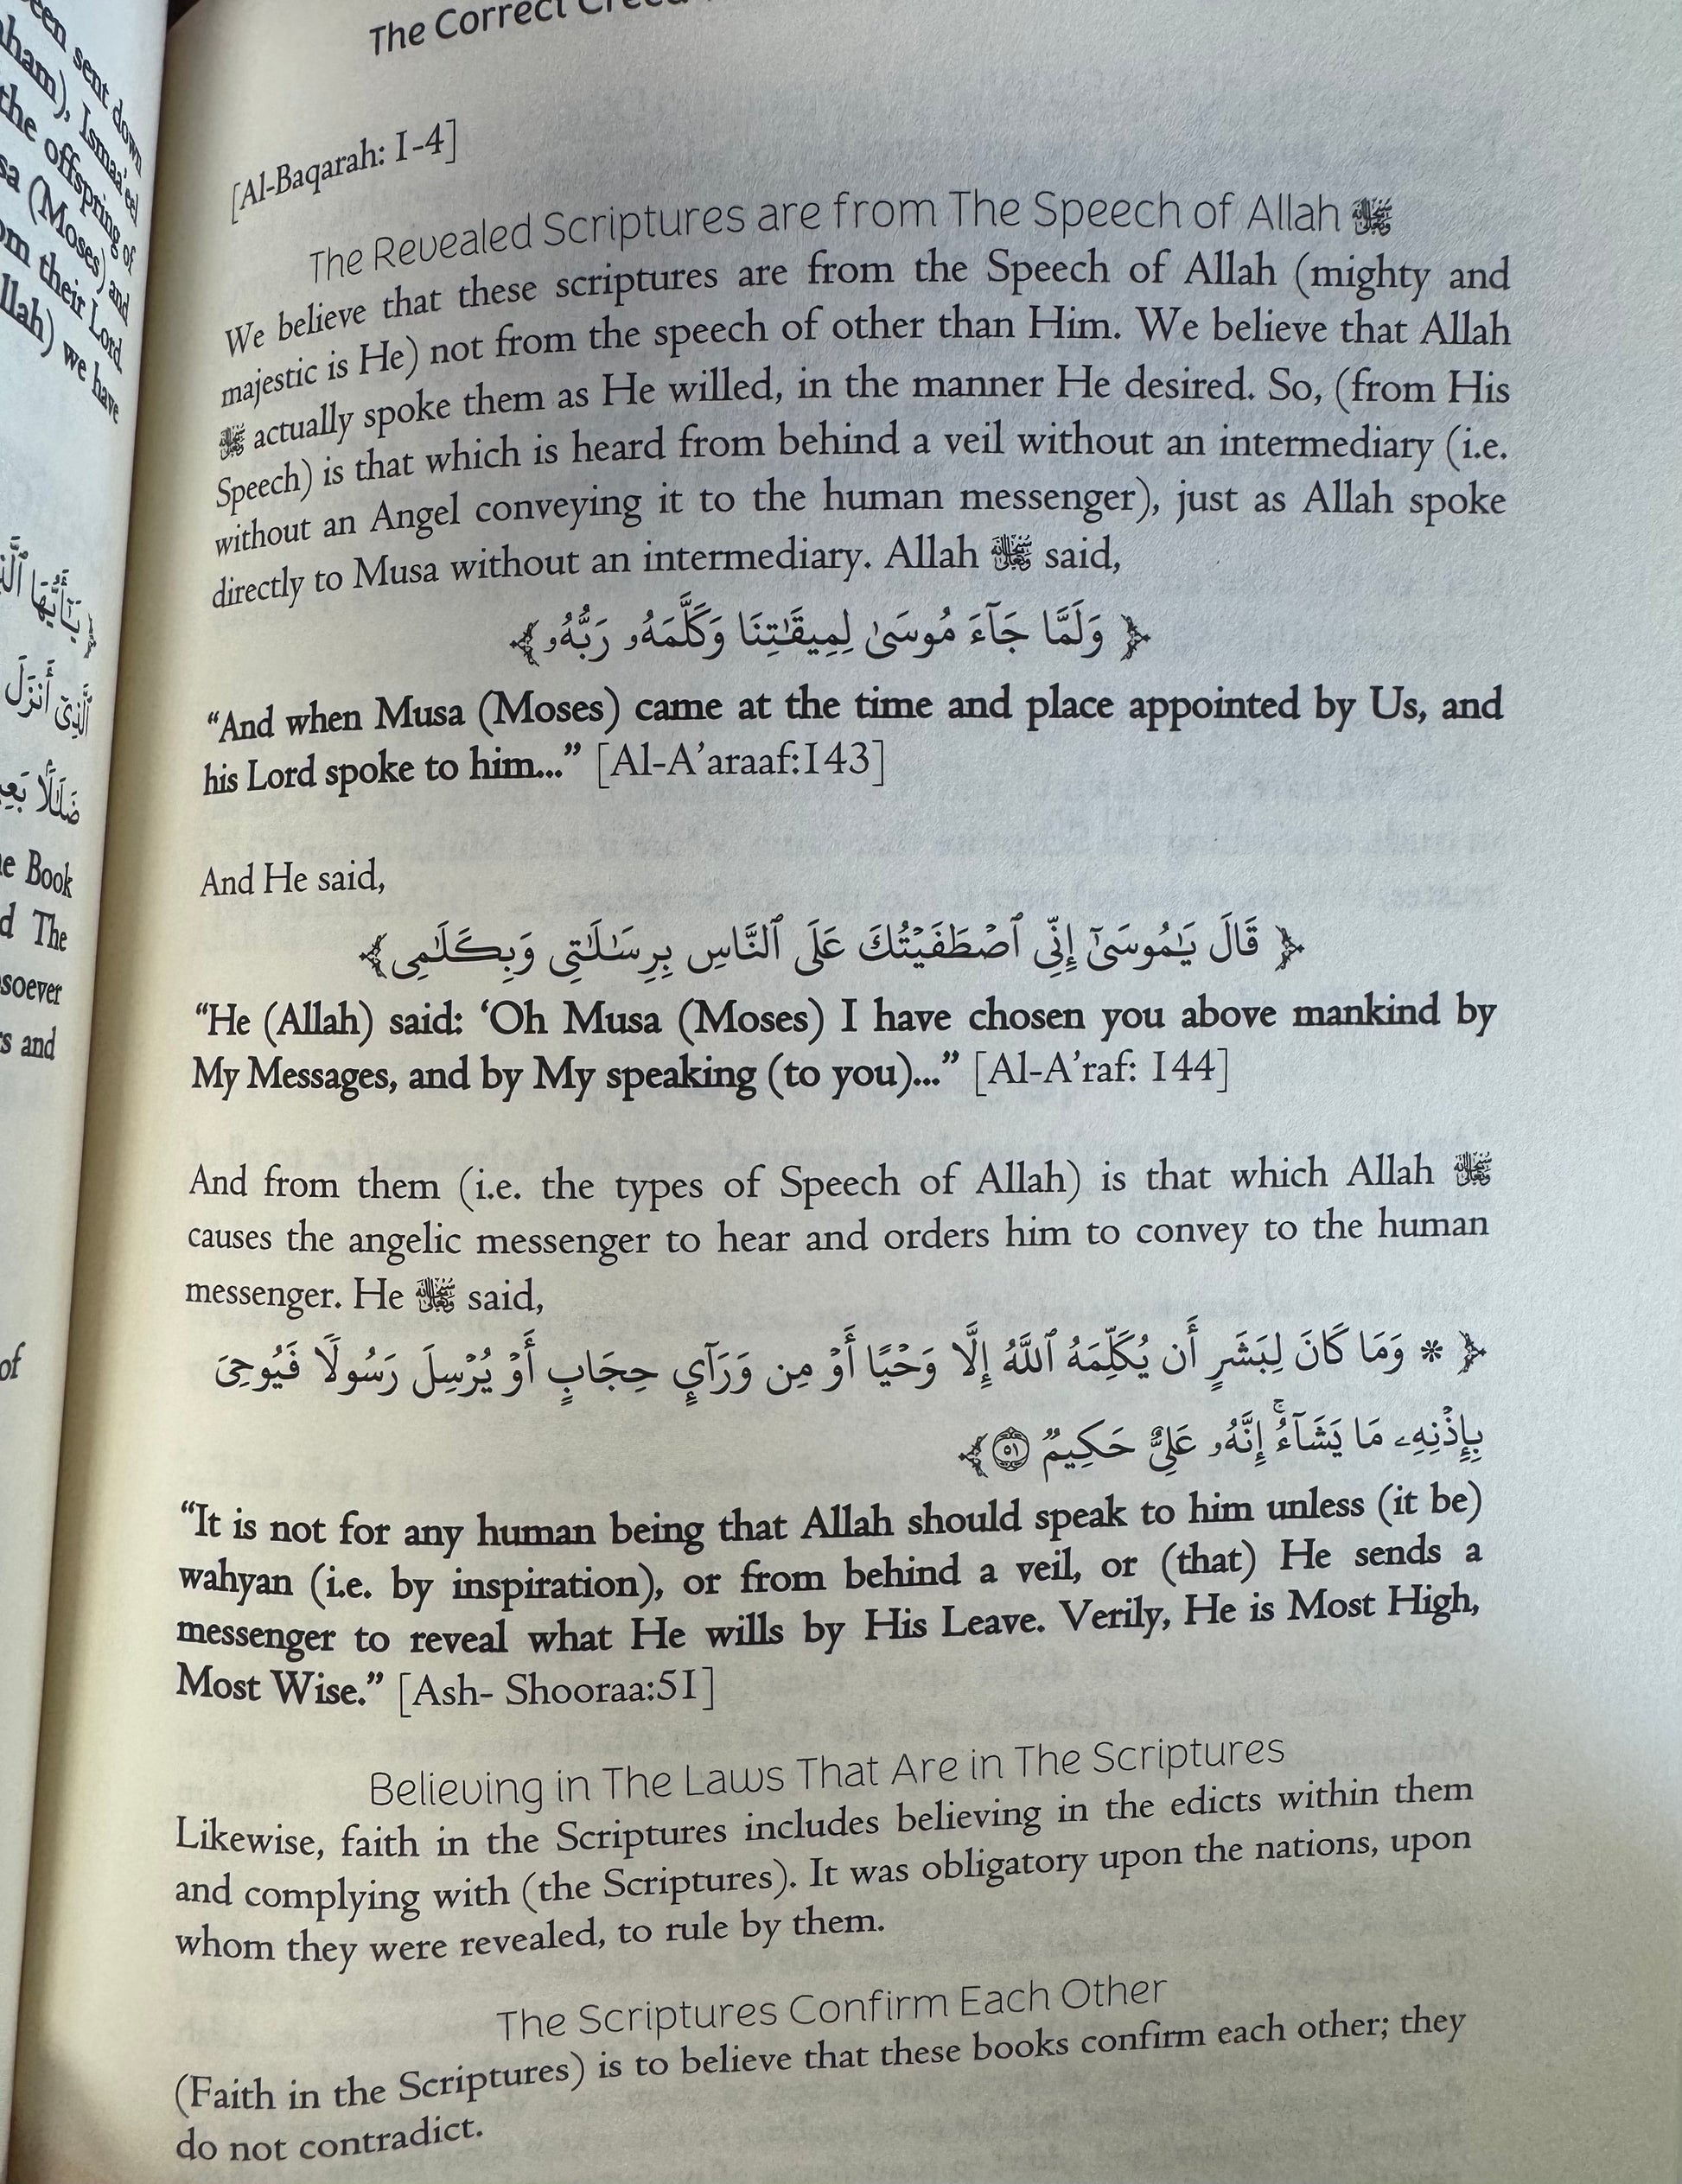 The Correct
[Al-Baqarah: 1-4]
The Revealed Scriptures are from The Speech of Allah ﷾
We believe that these scriptures are from the Speech of Allah (mighty and
majestic is He) not from the speech of other than Him. We believe that Allah
﷾ actually spoke them as He willed, in the manner He desired. So, (from His
Speech) is that which is heard from behind a veil without an intermediary (i.e.
without an Angel conveying it to the human messenger), just as Allah spoke
directly to Musa without an intermediary. Allah ﷾ said,
﴿ وَلَمَّا جَآءَ مُوسَىٰ لِمِيقَـٰتِنَا وَكَلَّمَهُۥ رَبُّهُۥ ﴾
“And when Musa (Moses) came at the time and place appointed by Us, and
his Lord spoke to him...” [Al-A’araaf:143]
And He said,
﴿ قَالَ يَـٰمُوسَىٰٓ إِنِّى ٱصْطَفَيْتُكَ عَلَى ٱلنَّاسِ بِرِسَـٰلَـٰتِى وَبِكَلَـٰمِى ﴾
“He (Allah) said: ‘Oh Musa (Moses) I have chosen you above mankind by
My Messages, and by My speaking (to you)...” [Al-A’raf: 144]
And from them (i.e. the types of Speech of Allah) is that which Allah ﷾
causes the angelic messenger to hear and orders him to convey to the human
messenger. He ﷾ said,
﴿ * وَمَا كَانَ لِبَشَرٍ أَن يُكَلِّمَهُ ٱللَّهُ إِلَّا وَحْيًا أَوْ مِن وَرَآئِ حِجَابٍ أَوْ يُرْسِلَ رَسُولًا فَيُوحِىَ
بِإِذْنِهِۦ مَا يَشَآءُ ۚ إِنَّهُۥ عَلِىٌّ حَكِيمٌ ٥١ ﴾
“It is not for any human being that Allah should speak to him unless (it be)
wahyan (i.e. by inspiration), or from behind a veil, or (that) He sends a
messenger to reveal what He wills by His Leave. Verily, He is Most High,
Most Wise.” [Ash- Shooraa:51]
Believing in The Laws That Are in The Scriptures
Likewise, faith in the Scriptures includes believing in the edicts within them
and complying with (the Scriptures). It was obligatory upon the nations, upon
whom they were revealed, to rule by them.
The Scriptures Confirm Each Other
(Faith in the Scriptures) is to believe that these books confirm each other; they
do not contradict.